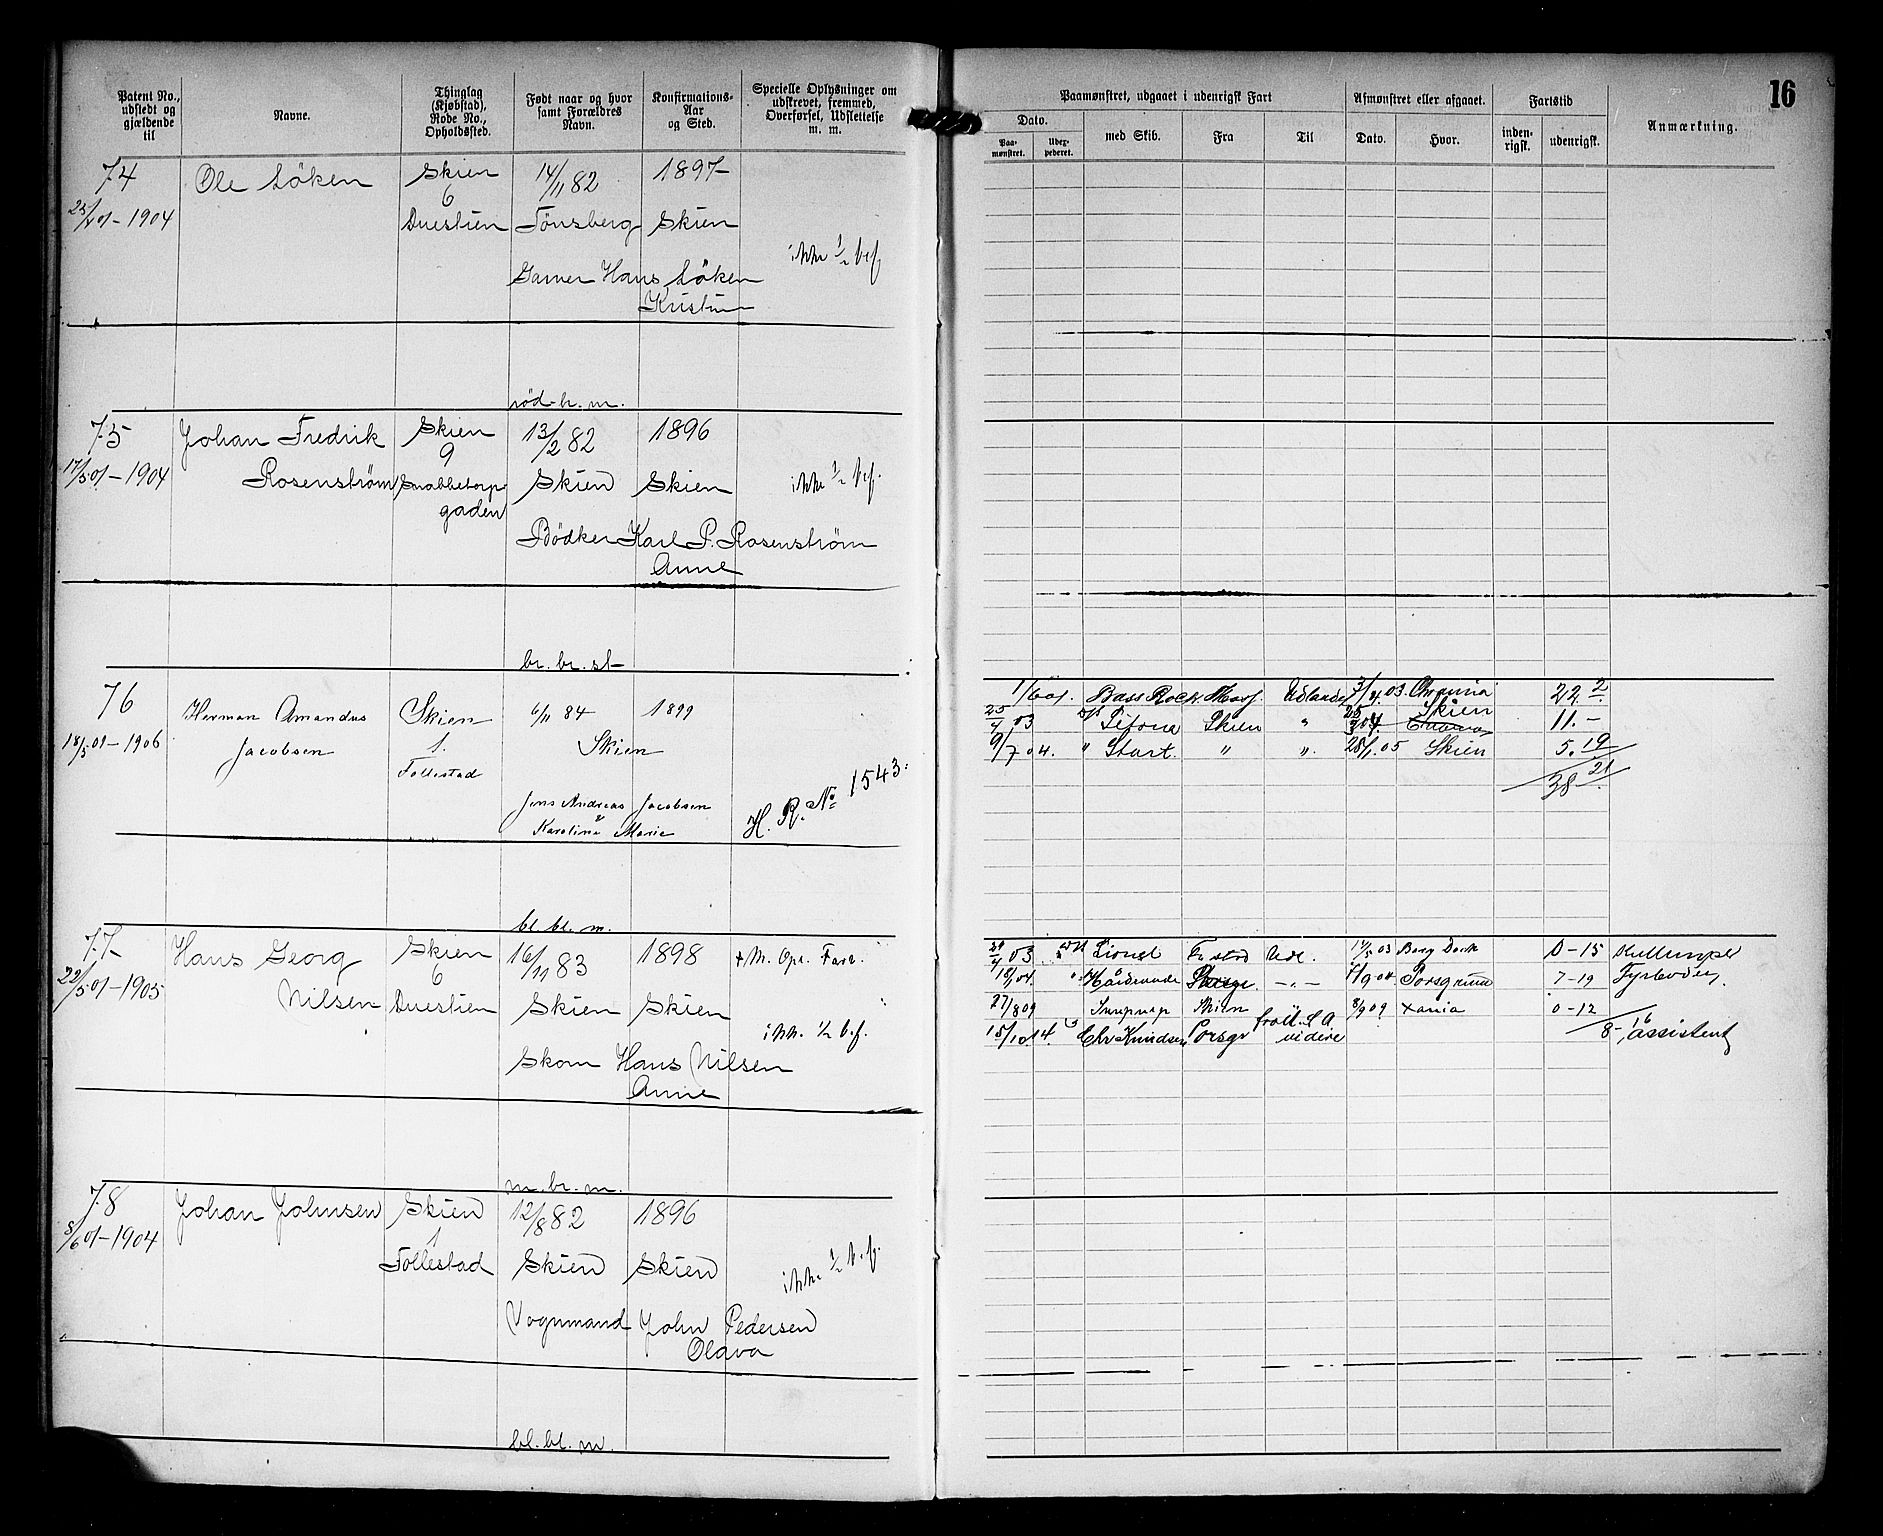 16
Patent No., udstedt og gjældende til
Navne.
Thinglag (Kjøbstad), Rode No., Opholdssted.
Født naar og hvor samt Forældres Navn.
Konfirmations- Aar og Sted.
Specielle Oplysninger om udskrevet, fremmed, Overførsel, Udslettelse m. m.
Paamønstret, udgaaet i udenrigsk Fart
Dato.
Paa- mønstret.
med Skib.
Fra
Til
Afmønstret eller afgaaet.
Dato.
Hvor.
Fartstid
inden- rigsk.
udenrigsk.
Anmærkning.
74 Ole Löken Skien 14/11 82 1897
6
01-1904 Duestien Tönsberg Skien
ikke 1/2 bef.
Garver Hans Löken
Kristine
br. m.
75 Johan Fredrik Skien 13/2 82 1896
9
17/5 01-1904 Rosenström Snabbetorp- Skien Skien ikke 1/2 bef.
gaden
Bödker Karl P. Rosenström
Anne
br. br. st
76 Herman Amandus Skien 6/11 84 1899
18/5 01-1906 Jacobsen 1. Skien
Follestad
Jens Andreas Jacobsen
& Karoline Marie
H. R. No 1543.
1/6 01. Bass Rock Udlandet 3/4 03. Chrania 22. 2
25/4 03 Skien " Skien 11. -
9/7 04. " Start. " ". 28/1. 05 Skien 5. 19
38 21
bl. bl. m.
77 Hans Georg Skien 16/11 83 1898
6
22/5 01-1905 Nilsen Duestien Skien Skien
ikk. 1/2 bef.
Skom Hans Nilsen
Anne
29/4 03 Lionel Fr stad Udl. 03 Barry Dock 0-15
04. " -"- 9 04 Porsgrund 7-19 Fyrböder
27/8 09 Skien 8/9 09 Xania 0-12
15/10 14. Chr Knudsen Porsgr videre 8-16 assistent
m. br. m.
78 Johan Johnsen Skien 12/8 82 1896
1
8/6 01-1904 Follestad Skien Skien ikke 1/2 bef.
Vognmand John Pedersen
Olava
bl. bl. m.